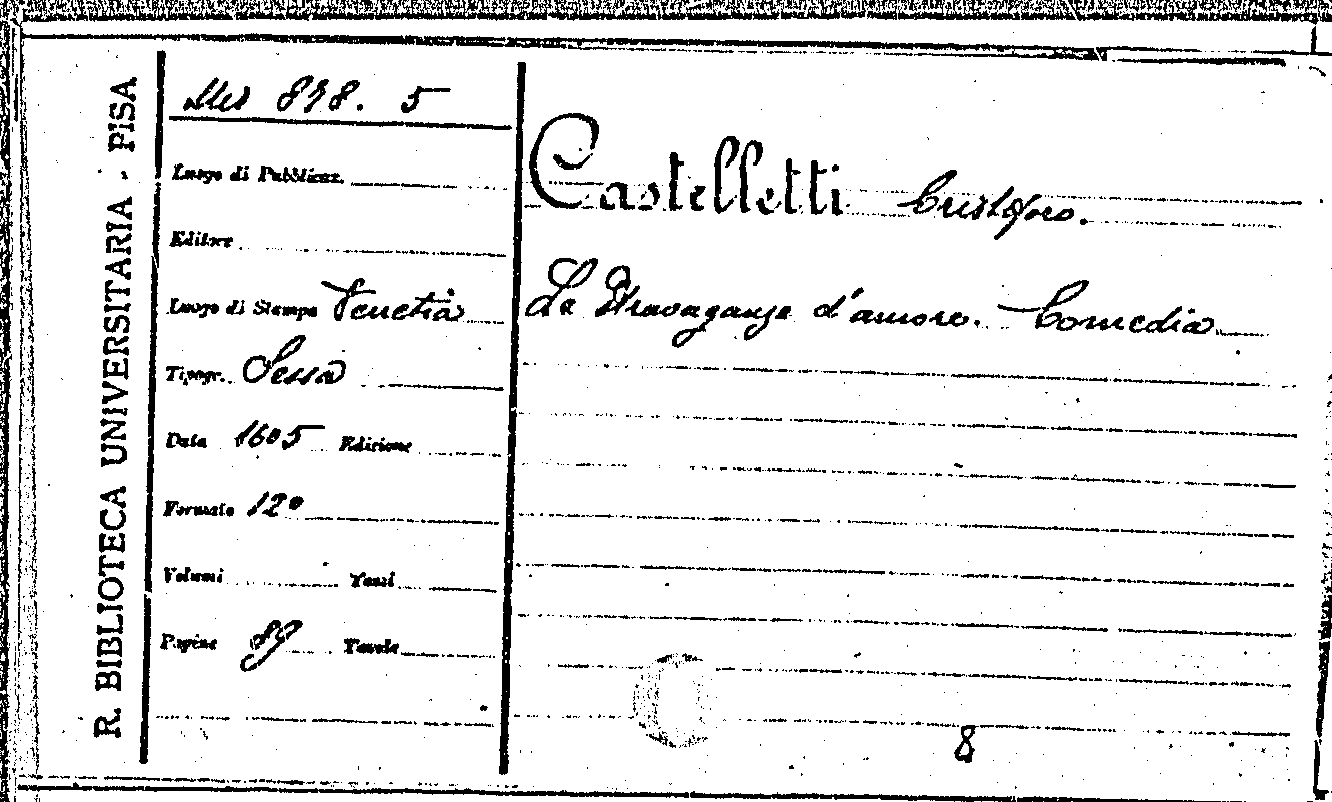 R. BIBLIOTECA UNIVERSITARIA - PISA
Mis 898. 5
Luogo di Pubblicaz.
Editore
Luogo di Stampa Venetia
Tipogr. Sessa
Data 1605 Edizione
Formato 12°
Volumi Tomi
Pagine 89 Tavole
Castelletti Cristoforo.
Le Stravaganze d'amore. Comedia
8